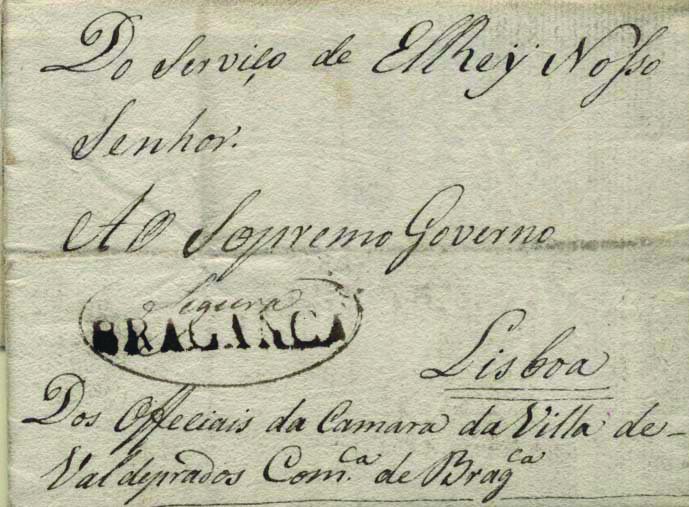 Do Serviço de ElRey Nosso
Senhor.
AO Sopremo Governo
Segura
BRAGANCA
Lisboa
Dos Offeciais da Camara da Villa de-
Valdeprados Com.ca de Bragca